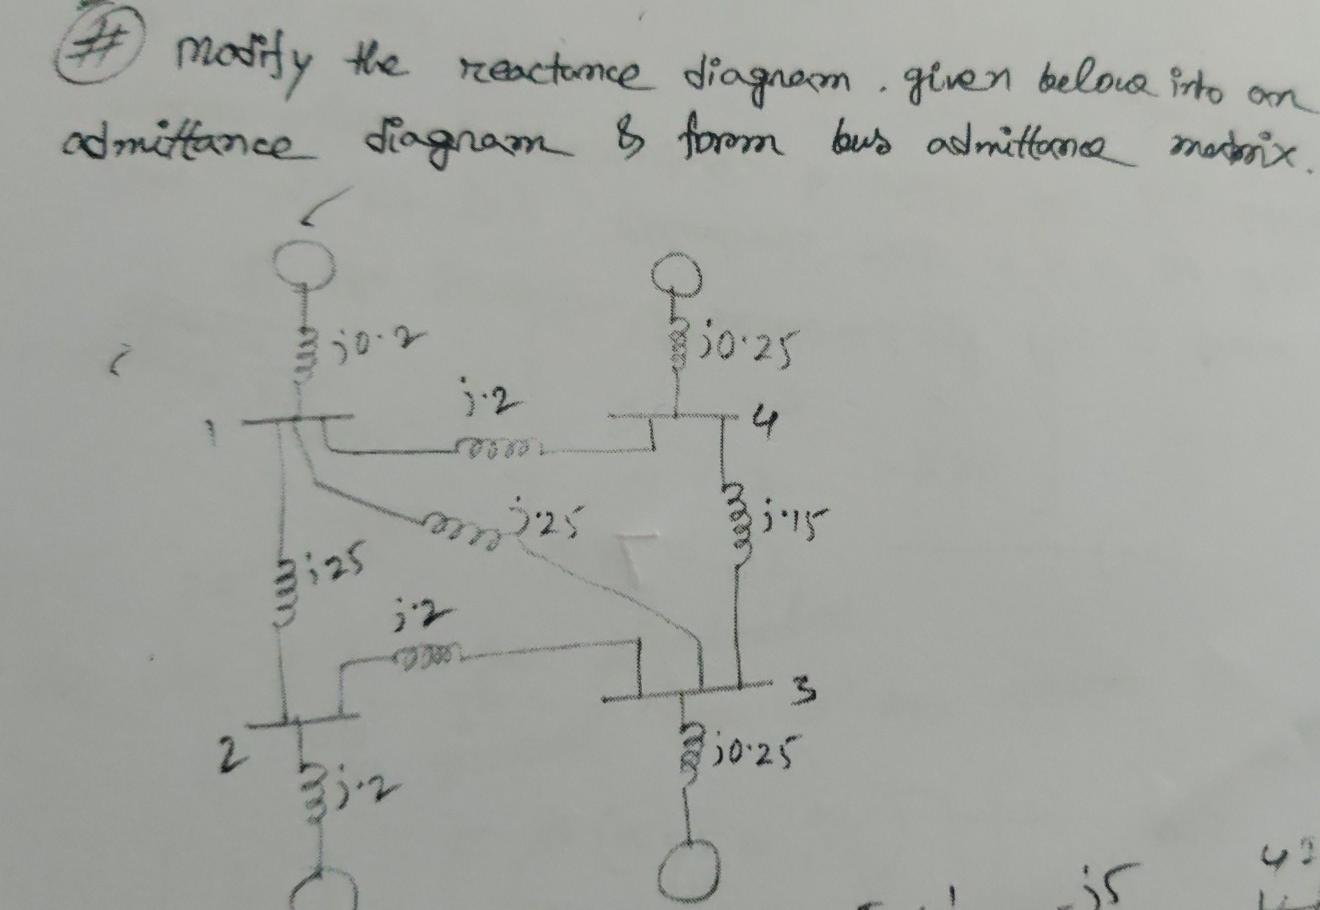 # Modify the reactance diagram. given below into an
admittance diagram & form bus admittance matrix.
j0.2
j0.25
j.2
1
4
j.25
j.15
j25
j.2
3
2
j0.25
j.2
-j5